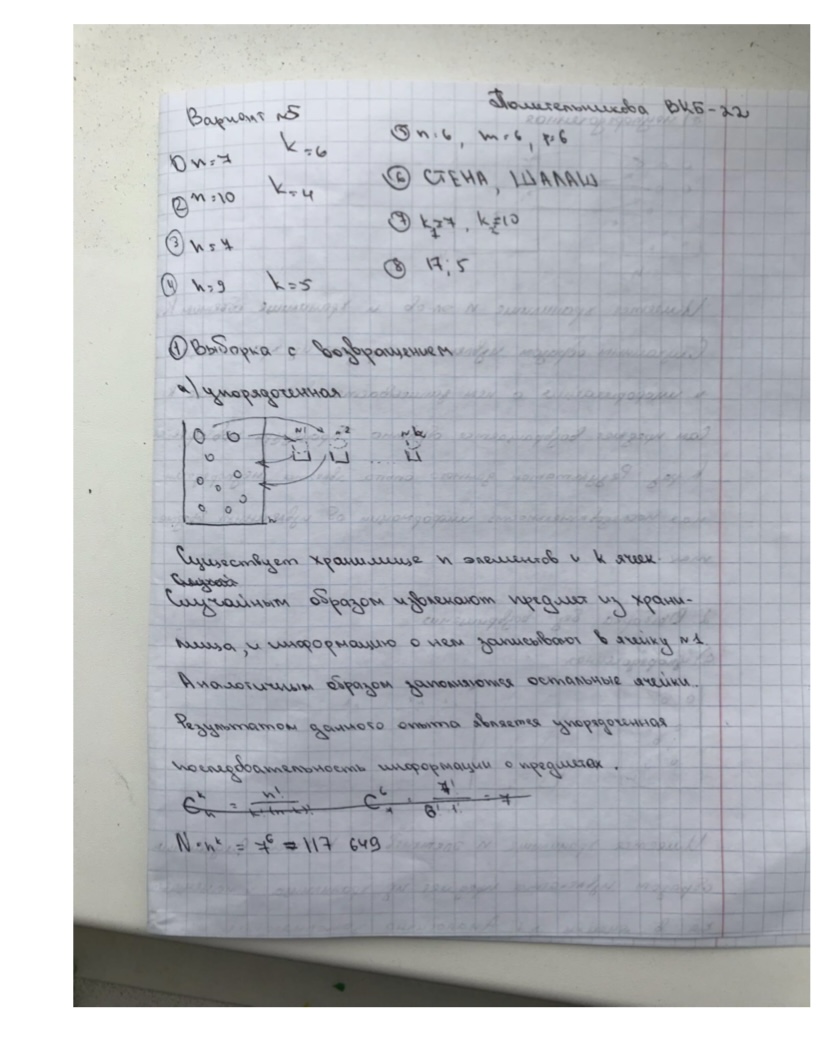 Полительникова ВКБ-22
Вариант №5
1) n=7 k=6
2) n=10 k=4
3) n=7
4) n=9 k=5
5) n=6, m=6, r=6
6) СТЕНА, ШАЛАШ
7) k₁=7, k₂=10
8) 17; 5
1) Выборка с возвращением
а) упорядоченная
№1 №2 №k
n
Существует хранилище n элементов и k ячеек.
Случайным образом извлекают предмет из храни-
лища, и информацию о нем записывают в ячейку №1.
Аналогичным образом заполняются остальные ячейки.
Результатом данного опыта является упорядоченная
последовательность информации о предметах.
N=nᵏ = 7⁶ = 117 649